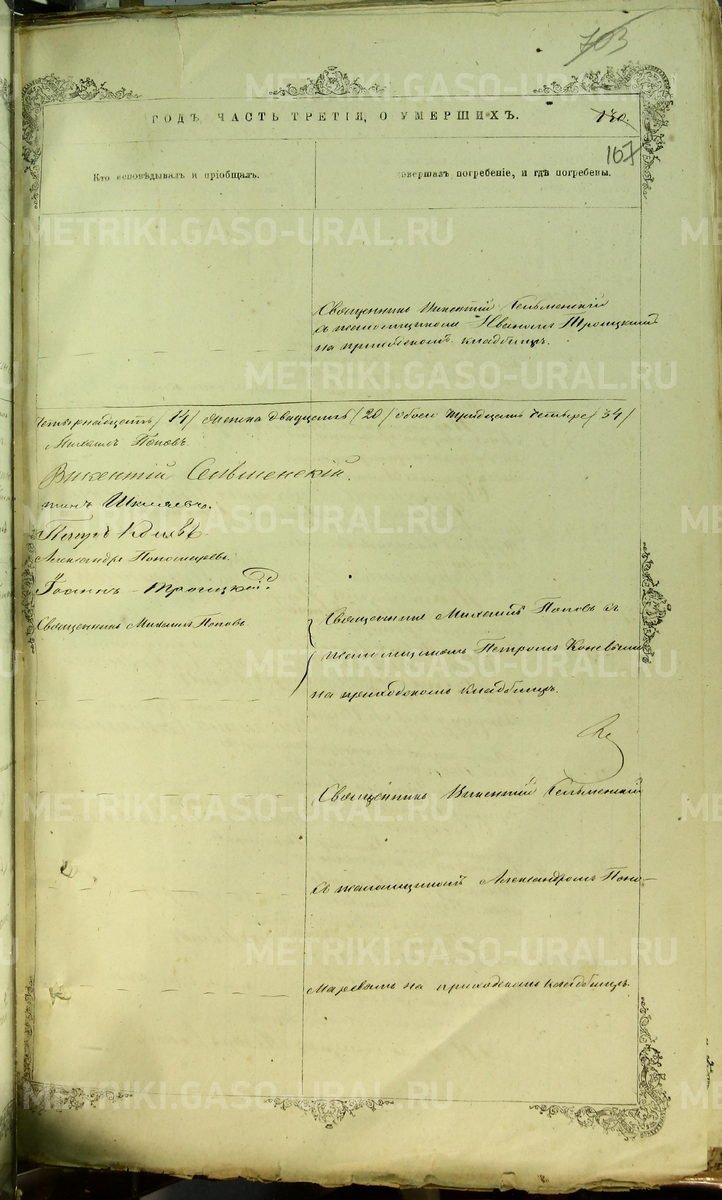 703
ГОДЪ, ЧАСТЬ ТРЕТІЯ, О УМЕРШИХЪ.
130
167
Кто исповѣдывалъ и пріобщалъ.
совершалъ погребеніе, и гдѣ погребены.
Священникъ Викентій
съ псаломщикомъ Иваномъ Троицкимъ
на приходскомъ кладбищѣ.
Четырнадцать /14/ женска двадцать /20/ обоего тридцать четыре /34/
Михаилъ Поповъ.
Викентій
Петръ
Александръ Пономаревъ.
Іоаннъ Троицкій.
Священникъ Михаилъ Поповъ
Священникъ Михаилъ Поповъ съ
псаломщикомъ Петромъ
на приходскомъ кладбищѣ.
Священникъ Викентій
съ псаломщикомъ Александромъ Поно-
маревымъ на приходскомъ кладбищѣ.
METRIKI.GASO-URAL.RU